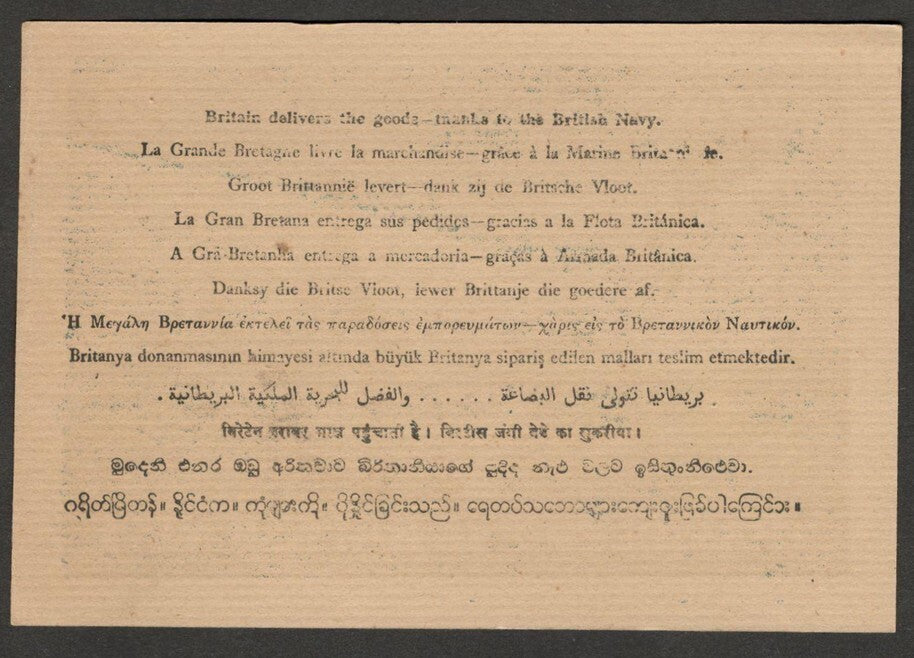 Britain delivers the goods—thanks to the British Navy.
La Grande Bretagne livre la marchandise—grâce à la Marine
Groot Brittannië levert—dank zij de Britsche Vloot.
La Gran Bretana entrega sus pedidos—gracias a la Flota Británica.
A Grã-Bretanha entrega a mercadoria—graças à Armada Británica.
Danksy die Britse Vloot, lewer Brittanje die goedere af.
Ἡ Μεγάλη Βρεταννία ἐκτελεῖ τὰς παραδόσεις ἐμπορευμάτων—χάρις εἰς τὸ Βρεταννικὸν Ναυτικόν.
Britanya donanmasının himayesi altında büyük Britanya sipariş edilen malları teslim etmektedir.
بريطانيا تتولى نقل البضاعة . . . . . . والفضل للبحرية الملكية البريطانية .
बिरेटेन बराबर माल पहुंचाता है। बिरटीस जंगी बेड़े का शुकरीया।
එතර ඔබ
ဂရိတ်ဗြိတိန်။ နိုင်ငံက။ ကုံများကို။ ပို့နိုင်ခြင်းသည်။ ရေတပ်သဘောများကျေးဇူးဖြစ်ပါကြောင်း။